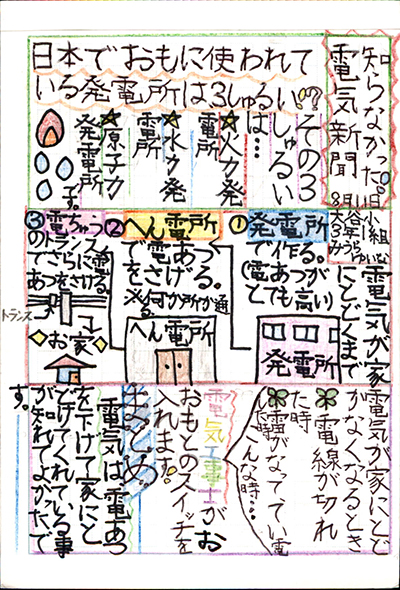 知らなかった。
電気新聞
8月1日
日本でおもに使われて
いる発電所は3しゅるい!?
その3
しゅるい
は…
☆火力発
電所
☆水力発
電所
☆原子力
発電所
です。
電気が家
にとどくまで
①
発電所
で電作る。
(電あつが
とても高い)
発電所
②
へん電所
で電あつ
をさげる。
※何か所か通る
へん電所
③
電ちゅう
の
トランス
で
電あつを
トランス
お家
電気が家にとど
かなくなるとき
電線が切れ
た時
雷がなってい
た時
こんな時…
電気工事士がお
おもとのスイッチを
入れます。
まとめ
電気は、電あつ
を下げて家にと
どけてくれている事
が知れてよかったで
す。